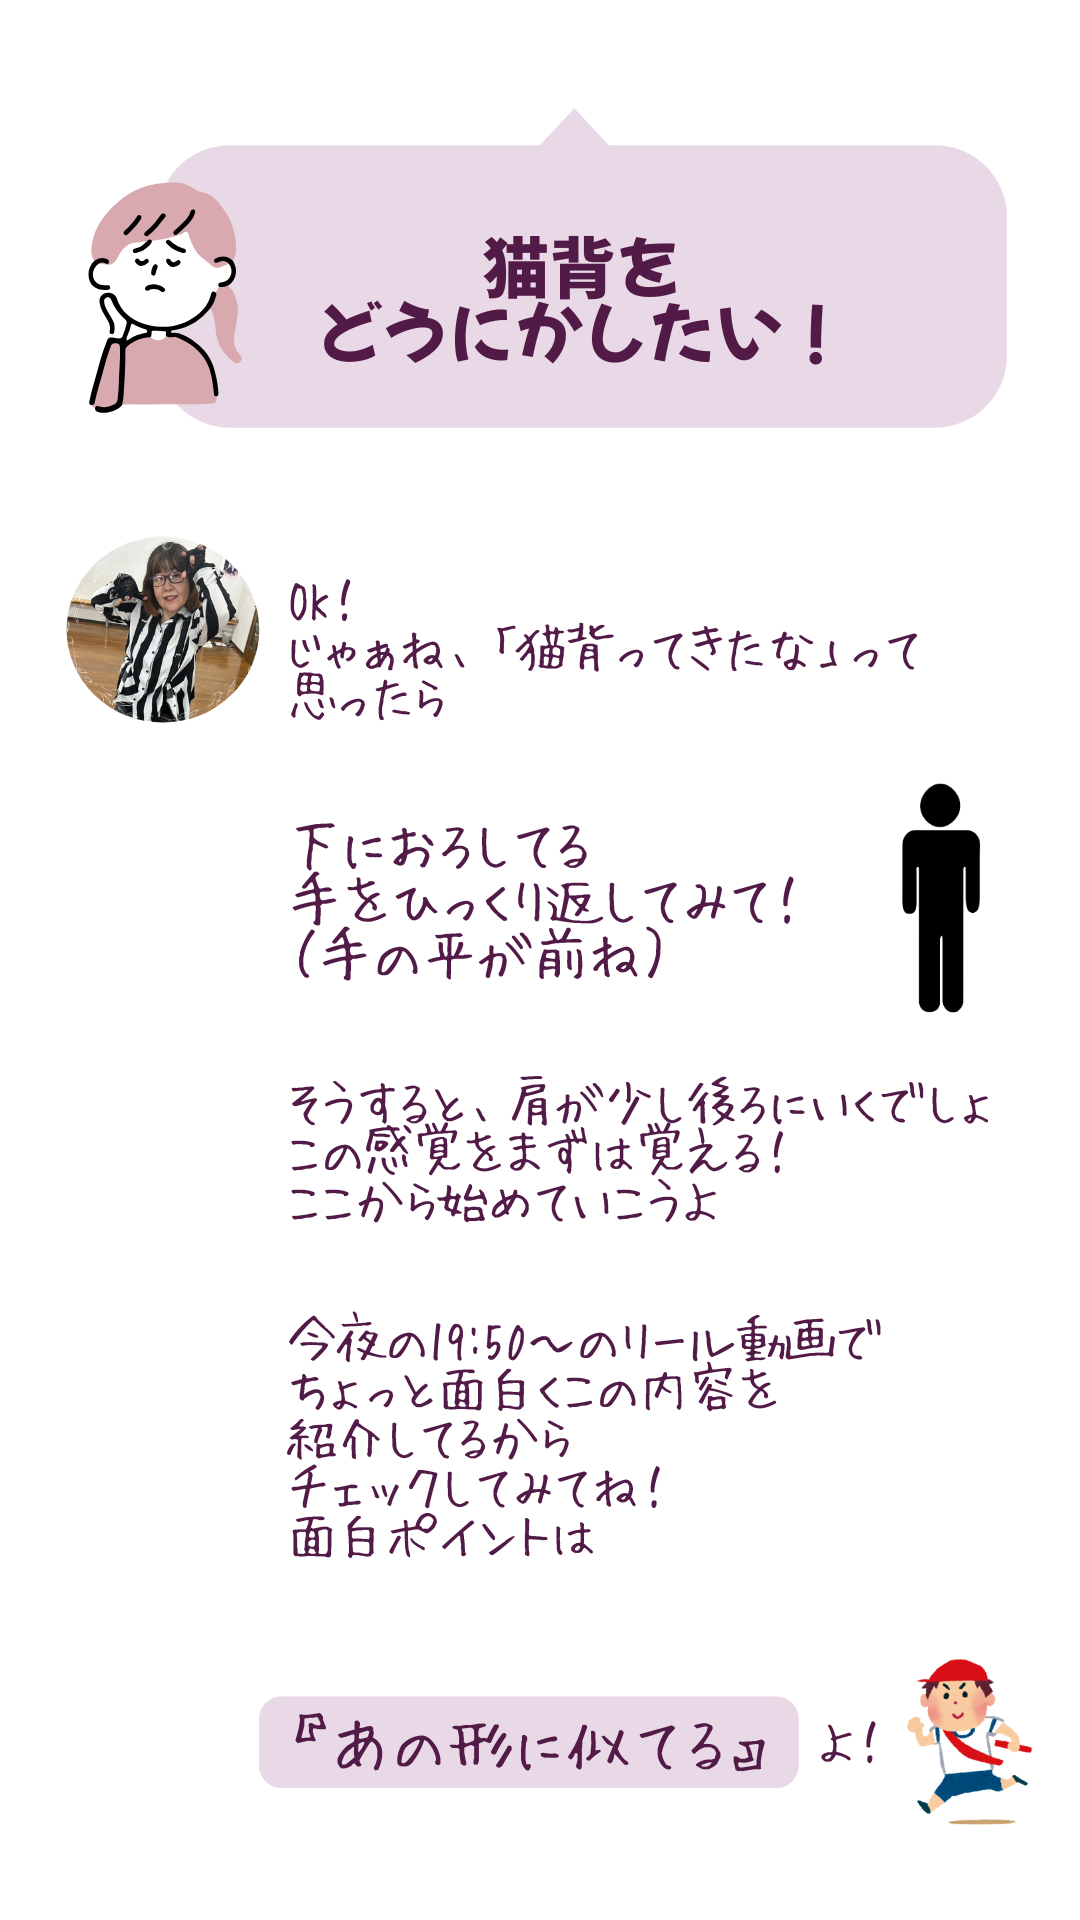 猫背を
どうにかしたい！
Ok!
じゃぁね、「猫背ってきたな」って
思ったら
下におろしてる
手をひっくり返してみて!
(手の平が前ね)
そうすると、肩が少し後ろにいくでしょ
この感覚をまずは覚える!
ここから始めていこうよ
今夜の19:50〜のリール動画で
ちょっと面白くこの内容を
紹介してるから
チェックしてみてね!
面白ポイントは
『あの形に似てる』よ!